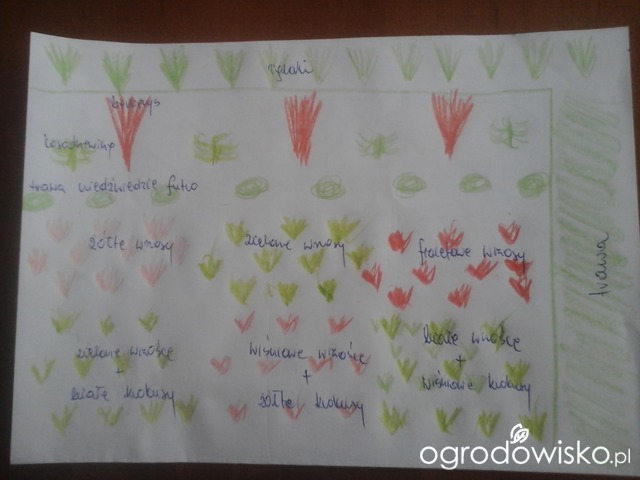 iglaki
berberys
trawa niedźwiedzie futro
żółte wrzosy
zielone wrzosy
fioletowe wrzosy
zielone wrzośce
+
białe krokusy
wiśniowe wrzośce
+
żółte krokusy
białe wrzośce
+
wiśniowe krokusy
trawa
ogrodowisko.pl